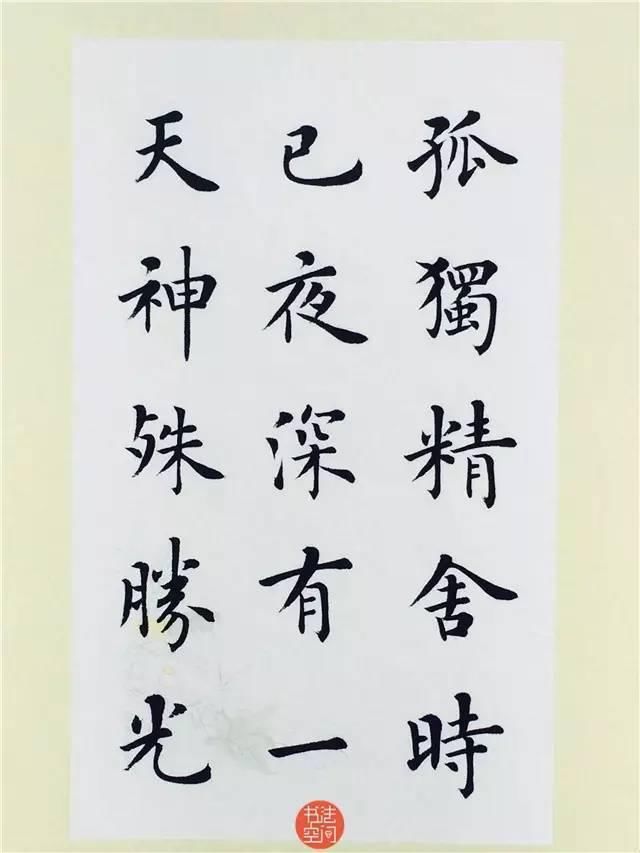 孤獨精舍時
已夜深有一
天神殊勝光
书法
空间